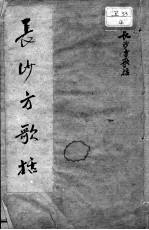 長沙方歌括
長沙方歌括